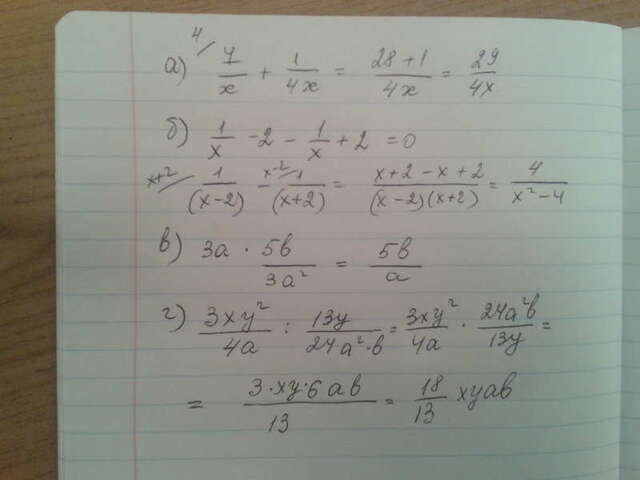 а) ⁴/ 7/x + 1/4x = 28+1/4x = 29/4x
б) 1/x -2 - 1/x + 2 = 0
x+2/ 1/(x-2) - x-2/ 1/(x+2) = x+2-x+2/(x-2)(x+2) = 4/x²-4
в) 3a · 5b/3a² = 5b/a
г) 3xy²/4a : 13y/24a²·b = 3xy²/4a · 24a²b/13y =
= 3·xy·6ab/13 = 18/13 xyab